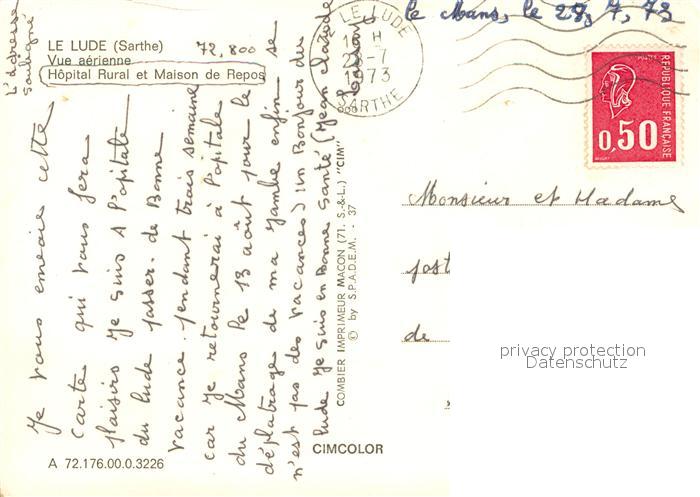 L'adresse
souligné
LE LUDE (Sarthe) 72,800
Vue aérienne
Hôpital Rural et Maison de Repos
Je vous envoie cette
Carte qui vous fera
plaisire Je suis A l'opitale
du lude passer de Bonne
vacance pendant trais semaine
car Je retournerai à l'opitale
du Mans le 13 août pour le
déplatrage de ma Jambe enfin se
n'est pas des vacances) un Bonjour du
lude Je suis en Bonne Santé (Jean claude
A 72.176.00.0.3226
CIMCOLOR
COMBIER IMPRIMEUR MACON (71. S.-&-L.) "CIM"
© by S.P.A.D.E.M. - 37
LE LUDE
H
-7
1973
SARTHE
le Mans, le 28, 7, 73
REPUBLIQUE FRANÇAISE
0,50
Monsieur et Madame
post
de
privacy protection
Datenschutz